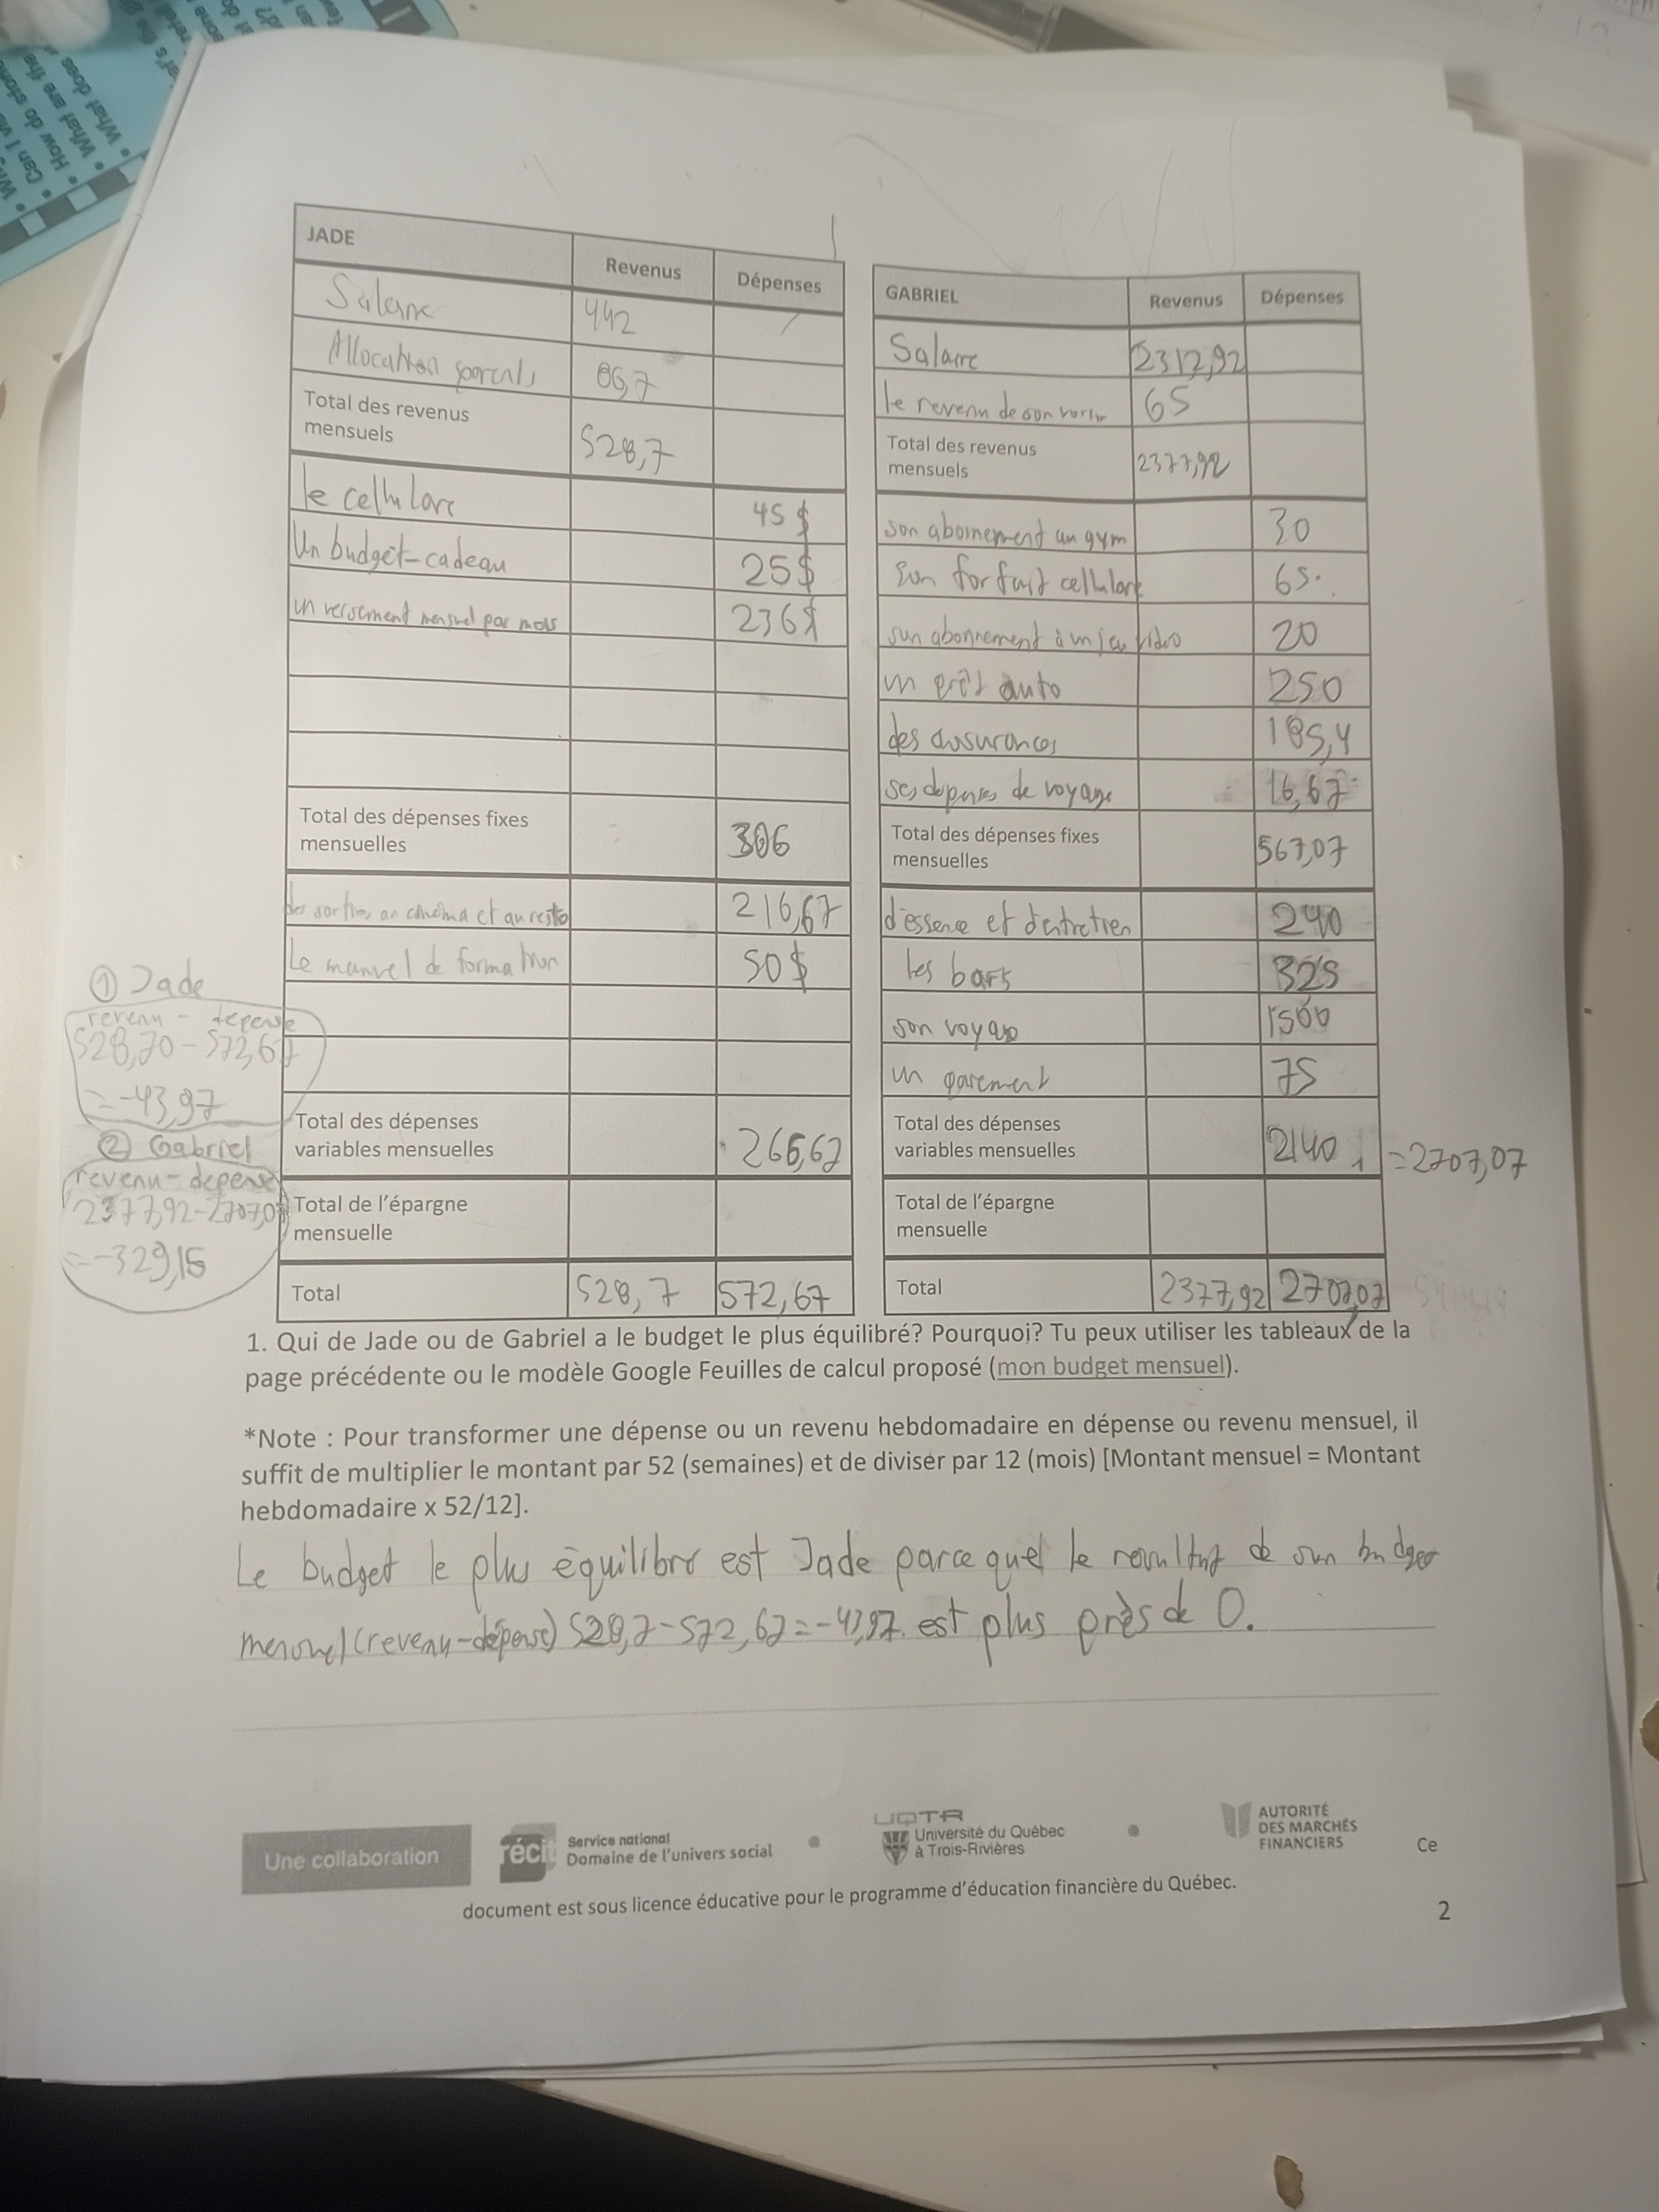 JADE
Revenus
Dépenses
Salaire
442
Allocation parents
86,7
Total des revenus
mensuels
528,7
le cellulare
45 $
Un budget-cadeau
25$
un versement mensuel par mois
236$
Total des dépenses fixes
mensuelles
306
des sorties au cinéma et au resto
216,67
Le manuel de formation
50$
Total des dépenses
variables mensuelles
266,67
Total de l'épargne
mensuelle
Total
528,7
572,67
GABRIEL
Revenus
Dépenses
Salaire
2312,92
le revenu de son
65
Total des revenus
mensuels
2377,92
son abonnement au gym
30
Son forfait cellulare
65
son abonnement à un jeu vidéo
20
un prêt auto
250
des assurances
185,4
ses dépenses de voyage
16,67
Total des dépenses fixes
mensuelles
567,07
d'essence et d'entretien
240
les bars
325
son voyage
1500
un paiement
75
Total des dépenses
variables mensuelles
2140
=2707,07
Total de l'épargne
mensuelle
Total
2377,92
2707,07
① Jade
revenu - dépense
528,70 - 572,67
= -43,97
② Gabriel
revenu - depense
2377,92-2707,07
= -329,15
1. Qui de Jade ou de Gabriel a le budget le plus équilibré? Pourquoi? Tu peux utiliser les tableaux de la
page précédente ou le modèle Google Feuilles de calcul proposé (mon budget mensuel).
*Note : Pour transformer une dépense ou un revenu hebdomadaire en dépense ou revenu mensuel, il
suffit de multiplier le montant par 52 (semaines) et de diviser par 12 (mois) [Montant mensuel = Montant
hebdomadaire x 52/12].
Le budget le plus équilibré est Jade parce que le résultat de son budget
mensuel (revenu-dépense) 528,7-572,67=-43,97. est plus près de 0.
Une collaboration
récit
Service national
Domaine de l'univers social
UQTR
Université du Québec
à Trois-Rivières
AUTORITÉ
DES MARCHÉS
FINANCIERS
Ce
document est sous licence éducative pour le programme d'éducation financière du Québec.
2